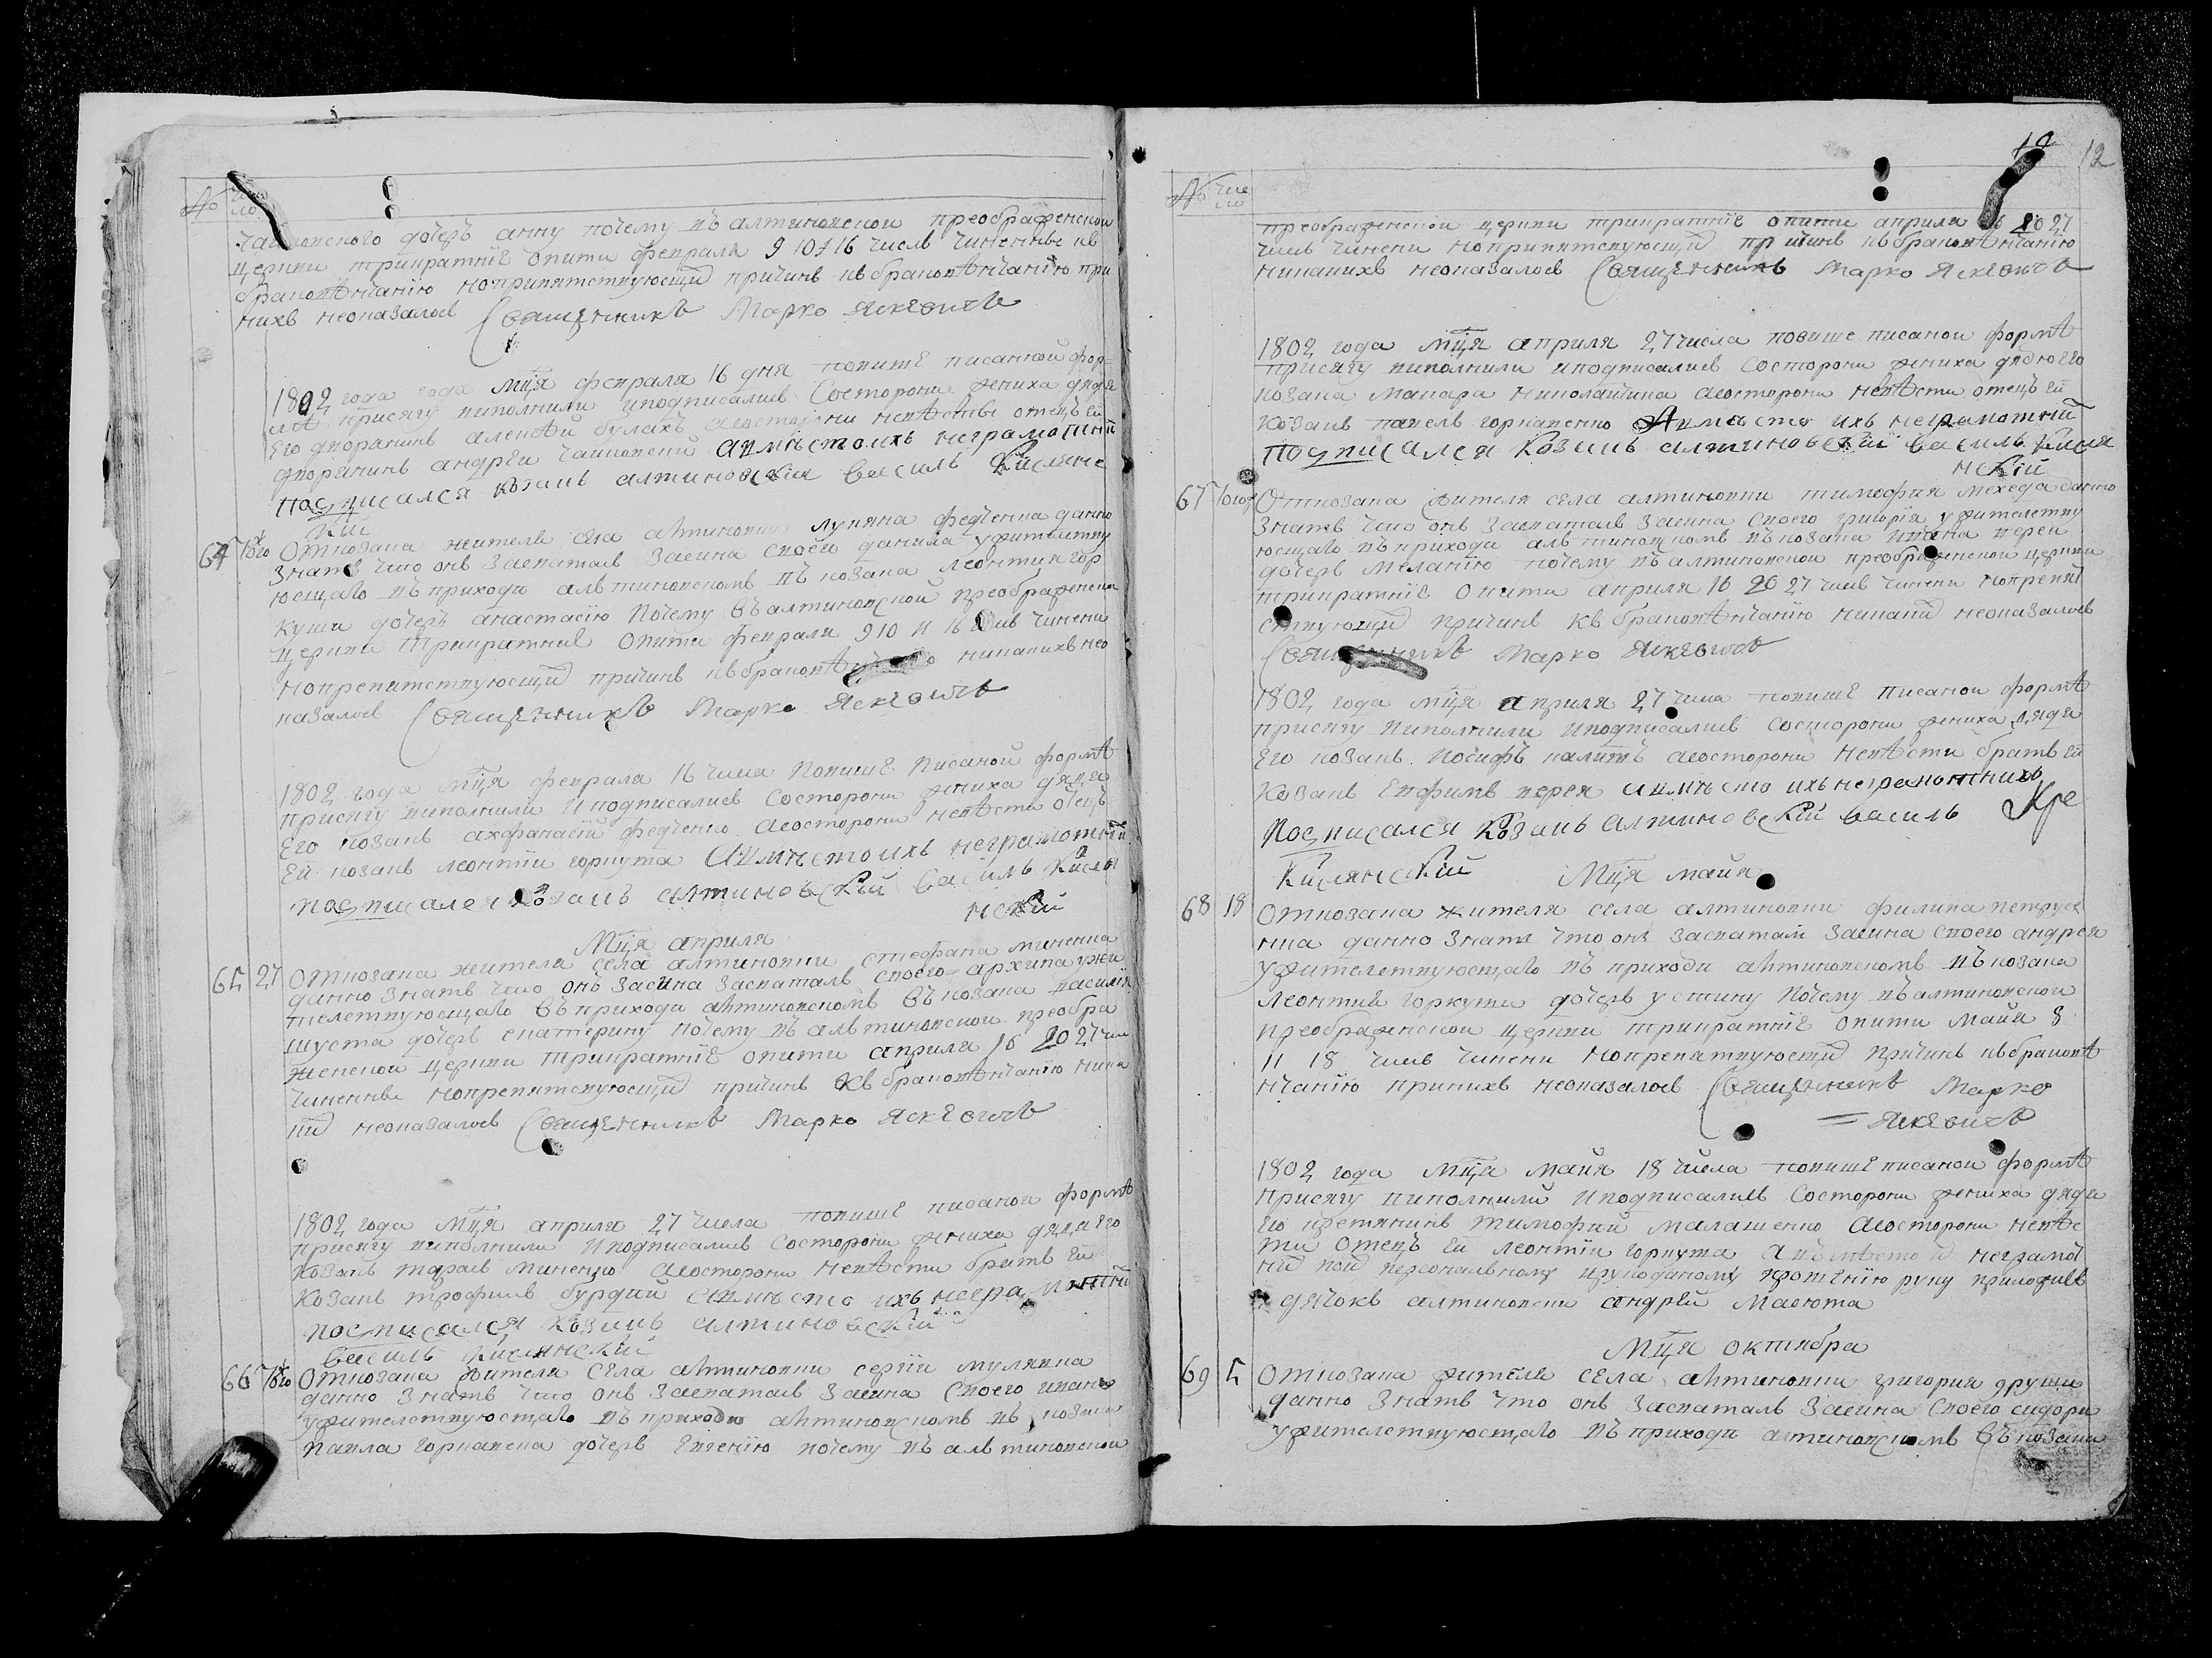 № число
чайковского дочерь анну почему въ алтиновской преображенской
церкви трикратніе опити февраля 9 10 і 16 числъ чиненные къ
браковѣнчанію копрепятствующихъ причинъ къ браковѣнчанію при
нихъ неоказалось Священникъ Марко Яскевичъ
1802 года года мца февраля 16 дня повише писанной фор=
мѣ присягу виполнили иподписались Состорони жениха дядя
Его дворянинъ алексѣй булахъ асосторони невѣсты отецъ ей
дворянинъ андрей чайковскій авмѣсто ихъ неграмотній
подписался козакъ алтиновскій василь Кислянс
кій
64 того Откозака жителя села алтиновки лукяна федченка данно
знать что онъ засваталъ засина своего данила ужителству
ющаго въ приходи алтиновскомъ въ козака леонтия гор
куши дочерь анастасію почему въ алтиновской преображенской
церкви трикратніе опити февраля 9 10 и 16 числъ чинени
копрепятствующихъ причинъ къ браковѣнчанію никакихъ нео
казалось Священникъ Марко Яскевичъ
1802 года мця февраля 16 числа повише писаной формѣ
присягу виполнили иподписались Состорони жениха дядя
Его козакъ афанасій федченко асосторони невѣсти отецъ
Ей козакъ леонтій горкуша авмѣсто ихъ неграмотній
подписался козакъ алтиновскій василь Кисля
нскій
Мця априля
65 27 Откозака жителя села алтиновки стефана миненка
данно знать что онъ засина засваталъ своего архипа ужи
телствующаго въ приходи алтиновскомъ въ козака василія
шуста дочерь екатерину почему въ алтиновской преобра
женской церкви трикратніе опити априля 16 20 27 чис
чиненные копрепятствующихъ причинъ къ браковѣнчанію ника
кихъ неоказалось Священникъ Марко Яскевичъ
1802 года мця априля 27 числа повише писаной формѣ
присягу виполнили иподписались Состорони жениха дядя Его
козакъ тарасъ миненко асосторони невѣсти братъ Ей
козакъ трофимъ бурдий авмѣсто ихъ неграмотній
подписался козакъ алтиновскій
василь Кислянскій
66 того Откозака жителя села алтиновки сергія
данно знать что онъ засваталъ засина своего ивана
ужителствующаго въ приходи алтиновскомъ въ козака
павла дочерь Евгенію почему въ алтиновской
12
№ число
преображенской церкви трикратніе опити априля 16 20 27
числъ чинени копрепятствующихъ причинъ къ браковѣнчанію
никакихъ неоказалось Священникъ Марко Яскевичъ
1802 года мця априля 27 числа повише писаной формѣ
присягу виполнили иподписались Состорони жениха дядю его
козака макара асосторони невѣсти отецъ ей
козакъ павелъ авмѣсто ихъ неграмотній
подписался козакъ алтиновскій василь Кисля
нскій
67 того Откозака жителя села алтиновки тимофия мехеда данно
знать что онъ засваталъ засина своего григорія ужителству
ющаго въ приходи алтиновскомъ въ козака ивана
дочерь меланію почему въ алтиновской преображенской церкви
трикратніе опити априля 16 20 27 числъ чинени копрепят
ствующихъ причинъ къ браковѣнчанію никакихъ неоказалось
Священникъ Марко Яскевичъ
1802 года мця априля 27 числа повише писаной формѣ
присягу виполнили иподписались Состорони жениха дядя
Его козакъ иосифъ асосторони невѣсти братъ Ей
козакъ Евфимъ авмѣсто ихъ неграмотнихъ
подписался козакъ алтиновскій василь
Кислянскій
Мця майя
68 18 Откозака жителя села алтиновки филипа петрусе
нка данно знать что онъ засваталъ засина своего андрея
ужителствующаго въ приходи алтиновскомъ въ козака
леонтия горкуши дочерь устину почему въ алтиновской
преображенской церкви трикратніе опити майя 8
11 18 числъ чинени копрепятствующихъ причинъ къ браковѣ
нчанію принихъ неоказалось Священникъ Марко
= Яскевичъ
1802 года мця майя 18 числа повише писаной формѣ
присягу виполнили иподписались Состорони жениха дядя
его тимофий малашенко асосторони невѣс
ти отецъ ей леонтій горкуша авъмѣсто ихъ неграмот
нихъ поихъ персоналному ирукоданому прошенію руку приложилъ
дячокъ алтиновски андрей Масюта
Мця октября
69 5 Откозака жителя села алтиновки григория
данно знать что онъ засваталъ засина своего сидора
ужителствующаго въ приходи алтиновскомъ въ козака